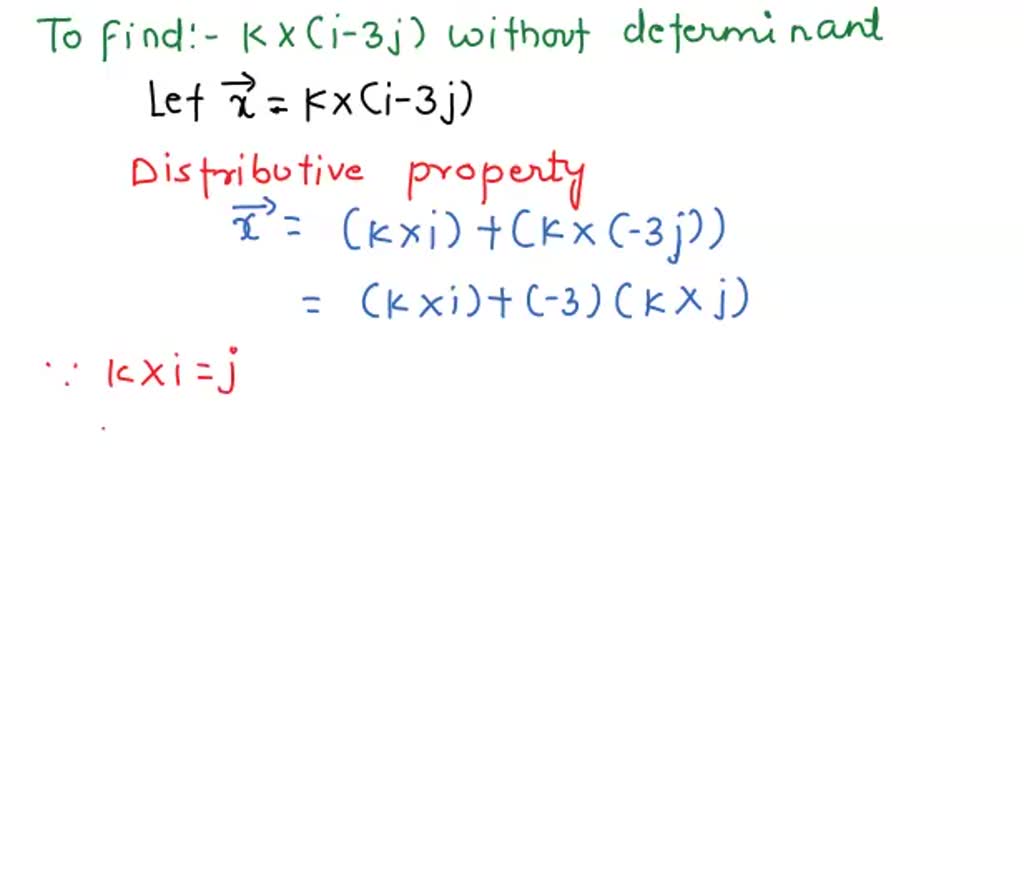 To find:- k×(i-3j) without determinant
Let x⃗ = k×(i-3j)
Distributive property
x⃗ = (k×i)+(k×(-3j))
= (k×i)+(-3)(k×j)
∵ k×i=j